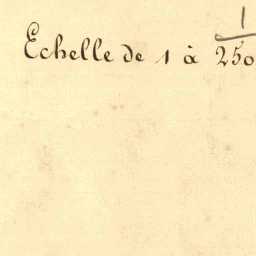 1
Echelle de 1 à 250